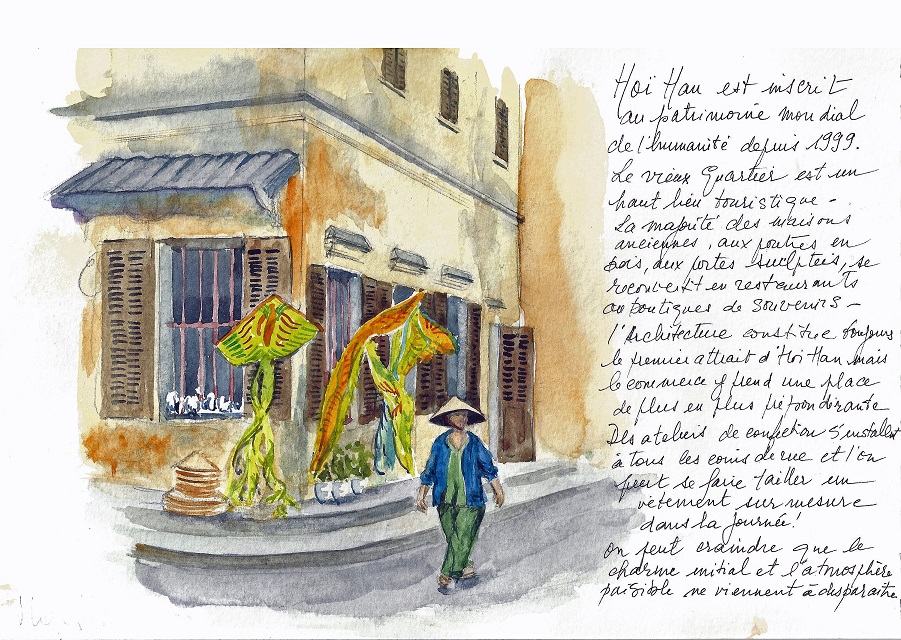 Hoï Han est inscrit
au patrimoine mondial
de l'humanité depuis 1999.
Le vieux Quartier est un
haut lieu touristique -
La majorité des maisons
anciennes, aux poutres en
bois, aux portes sculptées, se
reconvertit en restaurants
ou boutiques de souvenirs -
l'Architecture constitue toujours
le premier attrait d'Hoi Han mais
le commerce y prend une place
de plus en plus prépondérante
Des ateliers de confection s'installent
à tous les coins de rue et l'on
peut se faire tailler un
vêtement sur mesure
dans la journée!
On peut craindre que le
charme initial et l'atmosphère
paisible ne viennent à disparaitre